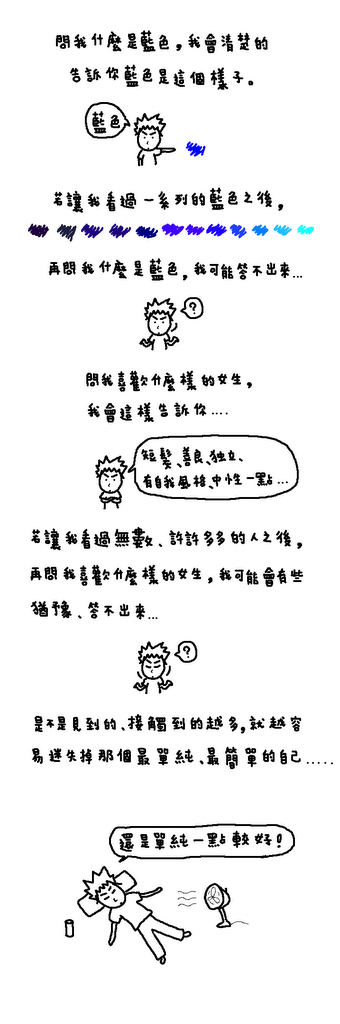 問我什麼是藍色，我會清楚的
告訴你藍色是這個樣子。
藍色
若讓我看過一系列的藍色之後，
再問我什麼是藍色，我可能答不出來...
?
問我喜歡什麼樣的女生，
我會這樣告訴你....
短髮、善良、獨立、
有自我風格、中性一點...
若讓我看過無數、許許多多的人之後，
再問我喜歡什麼樣的女生，我可能會有些
猶豫、答不出來...
?
是不是見到的、接觸到的越多，就越容
易迷失掉那個最單純、最簡單的自己.....
還是單純一點較好！